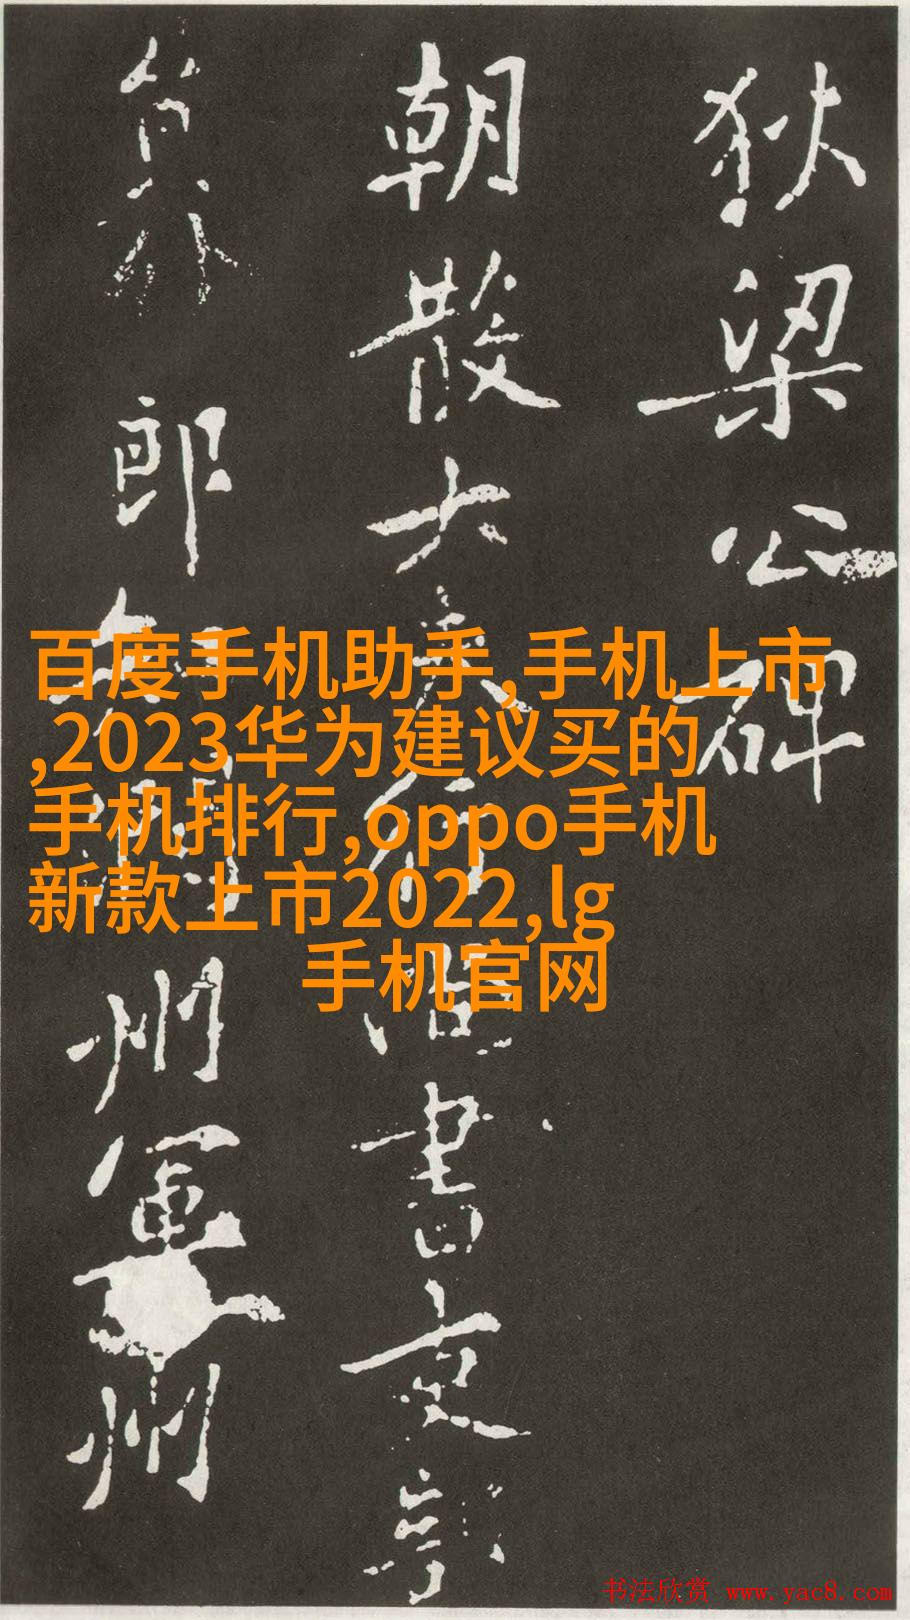 狄梁公碑
朝散大夫行書吏部
員外郎知潤州軍州
百度手机助手,手机上市
,2023华为建议买的
手机排行,oppo手机
新款上市2022,lg
手机官网
书法欣赏 www.yac8.com